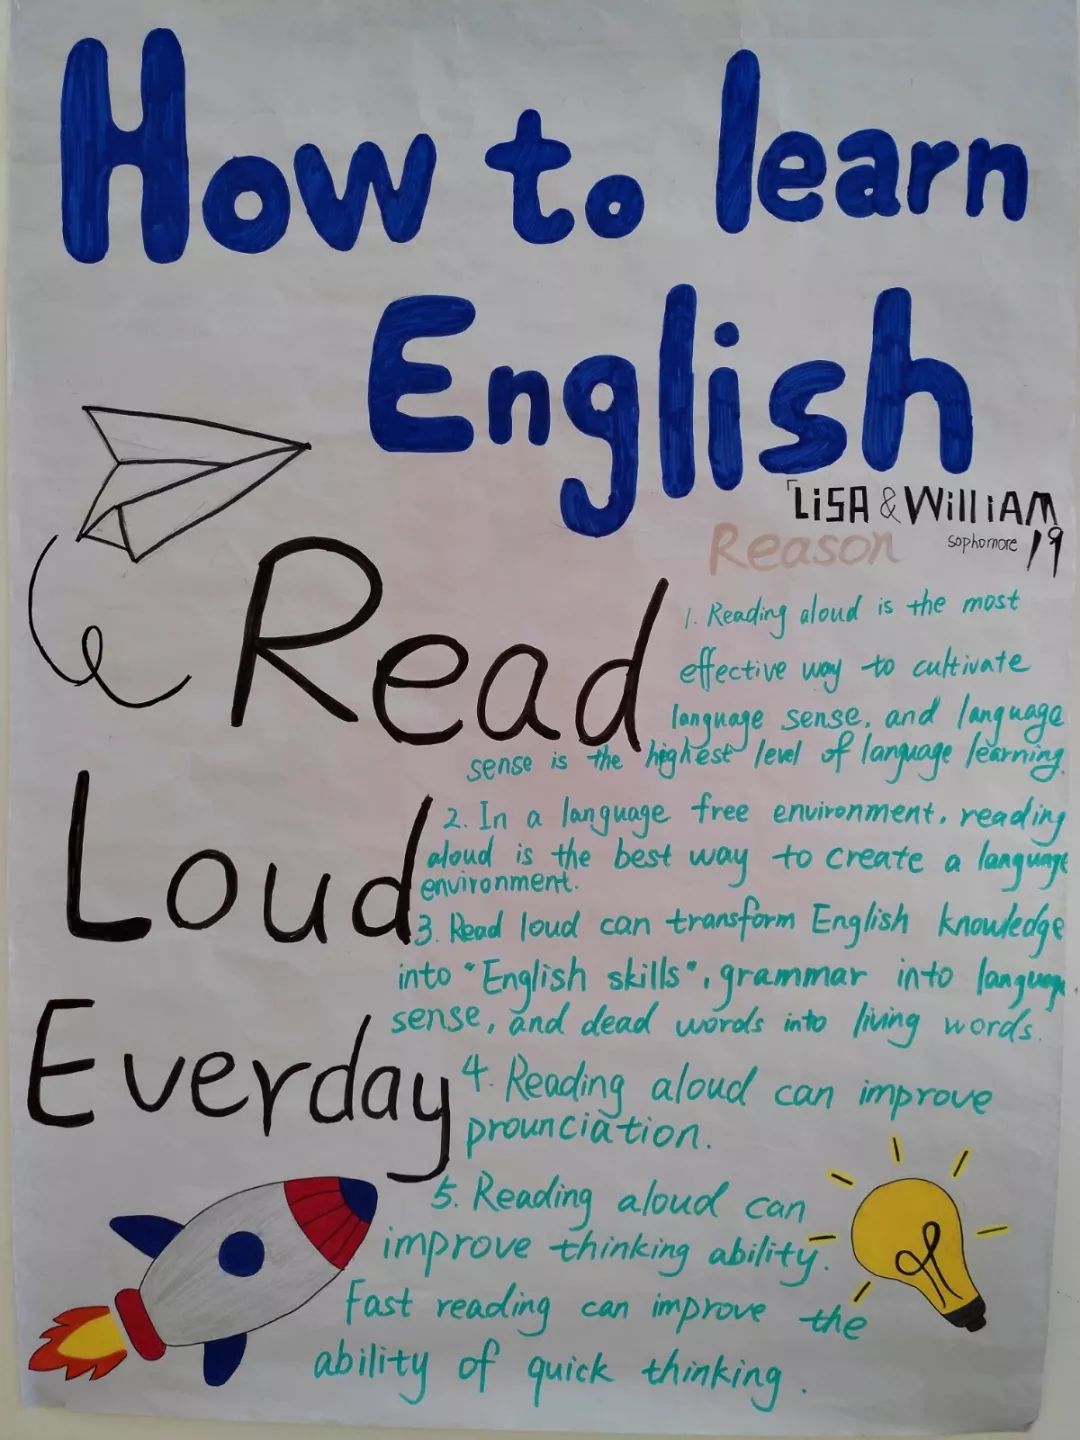 How to learn
English
「LiSA & WilliAM
Reason
sophomore 19
Read
Loud
Everday
1. Reading aloud is the most
effective way to cultivate
language sense, and language
sense is the highest level of language learning.
2. In a language free environment, reading
aloud is the best way to create a language
environment.
3. Read loud can transform English knowledge
into "English skills", grammar into language
sense, and dead words into living words.
4. Reading aloud can improve
prounciation.
5. Reading aloud can
improve thinking ability.
Fast reading can improve the
ability of quick thinking.